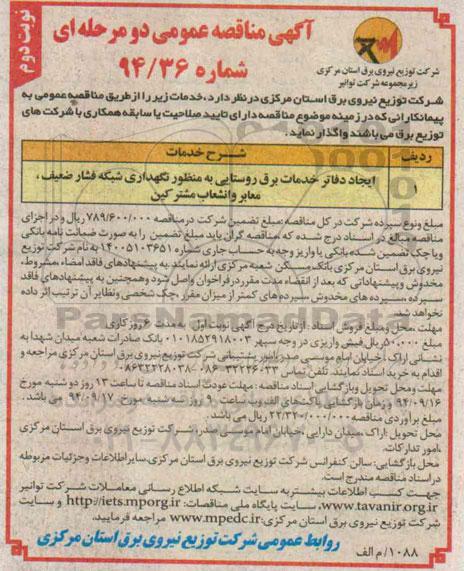 نوبت دوم
آگهی مناقصه عمومی دو مرحله ای
شماره ۹۴/۳۶
شرکت توزیع نیروی برق استان مرکزی
زیر مجموعه شرکت توانیر
شرکت توزیع نیروی برق استان مرکزی در نظر دارد، خدمات زیر را از طریق مناقصه عمومی به
پیمانکارانی که در زمینه موضوع مناقصه دارای تایید صلاحیت یا سابقه همکاری با شرکت های
توزیع برق می باشند واگذار نماید.
ردیف شرح خدمات
۱ ایجاد دفاتر خدمات برق روستایی به منظور نگهداری شبکه فشار ضعیف،
معابر و انشعاب مشترکین
مبلغ و نوع سپرده شرکت در کل مناقصه مبلغ تضمین شرکت در مناقصه ۷۸۹/۶۰۰/۰۰۰ ریال و در اجزای
مناقصه مبالغ در اسناد درج شده که مناقصه گران باید مبلغ تضمین را به صورت ضمانت نامه بانکی
و یا چک تضمین شده بانکی یا واریز وجه به حساب جاری شماره ۱۴۰۰۵۱۰۳۶۵۱ به نام شرکت توزیع
نیروی برق استان مرکزی بانک مسکن شعبه مرکزی ارائه نمایند به پیشنهادهای فاقد امضاء، مشروط،
مخدوش و پیشنهاداتی که بعد از انقضاء مدت مقرر در فراخوان واصل شود و همچنین به پیشنهادهای فاقد
سپرده، سپرده های مخدوش، سپرده های کمتر از میزان مقرر، چک شخصی و نظایر آن ترتیب اثر داده
نخواهد شد.
مهلت، محل و مبلغ فروش اسناد: از تاریخ درج آگهی نوبت اول به مدت ۶ روز کاری.
مبلغ ۵۰۰/۰۰۰ ریال فیش واریزی در وجه سپهر ۰۱۰۱۸۵۲۹۱۸۰۰۳ بانک صادرات شعبه میدان شهدا به
نشانی اراک، خیابان امام موسی صدر، امور پشتیبانی شرکت توزیع نیروی برق استان مرکزی مراجعه و
اقدام به خرید اسناد نمایند. تلفن تماس ۳۲۲۴۶۰۳۳-۰۸۶ / ۰۸۶۳۲۲۲۸۰۳۸
مهلت و محل تحویل و بازگشایی اسناد مناقصه: مهلت عودت اسناد مناقصه تا ساعت ۱۳ روز دو شنبه مورخ
۹۴/۰۹/۱۶ و زمان بازگشایی پاکت های الف و ب ساعت ۹ روز سه شنبه مورخ ۹۴/۰۹/۱۷ می باشد.
مبلغ برآوردی مناقصه ۲۲/۳۲۰/۰۰۰/۰۰۰ ریال می باشد.
محل تحویل: اراک، میدان دارایی، خیابان امام موسی صدر، شرکت توزیع نیروی برق استان مرکزی
،امور تدارکات.
محل بازگشایی: سالن کنفرانس شرکت توزیع نیروی برق استان مرکزی، سایر اطلاعات و جزئیات مربوطه
در اسناد مناقصه مندرج است.
جهت کسب اطلاعات بیشتر به سایت شبکه اطلاع رسانی معاملات شرکت توانیر
www.tavanir.org.ir، سایت پایگاه ملی مناقصات: http://iets.mporg.ir و سایت
شرکت توزیع نیروی برق استان مرکزی www.mpedc.ir مراجعه فرمایید.
روابط عمومی شرکت توزیع نیروی برق استان مرکزی
۱۰۸۸/م الف